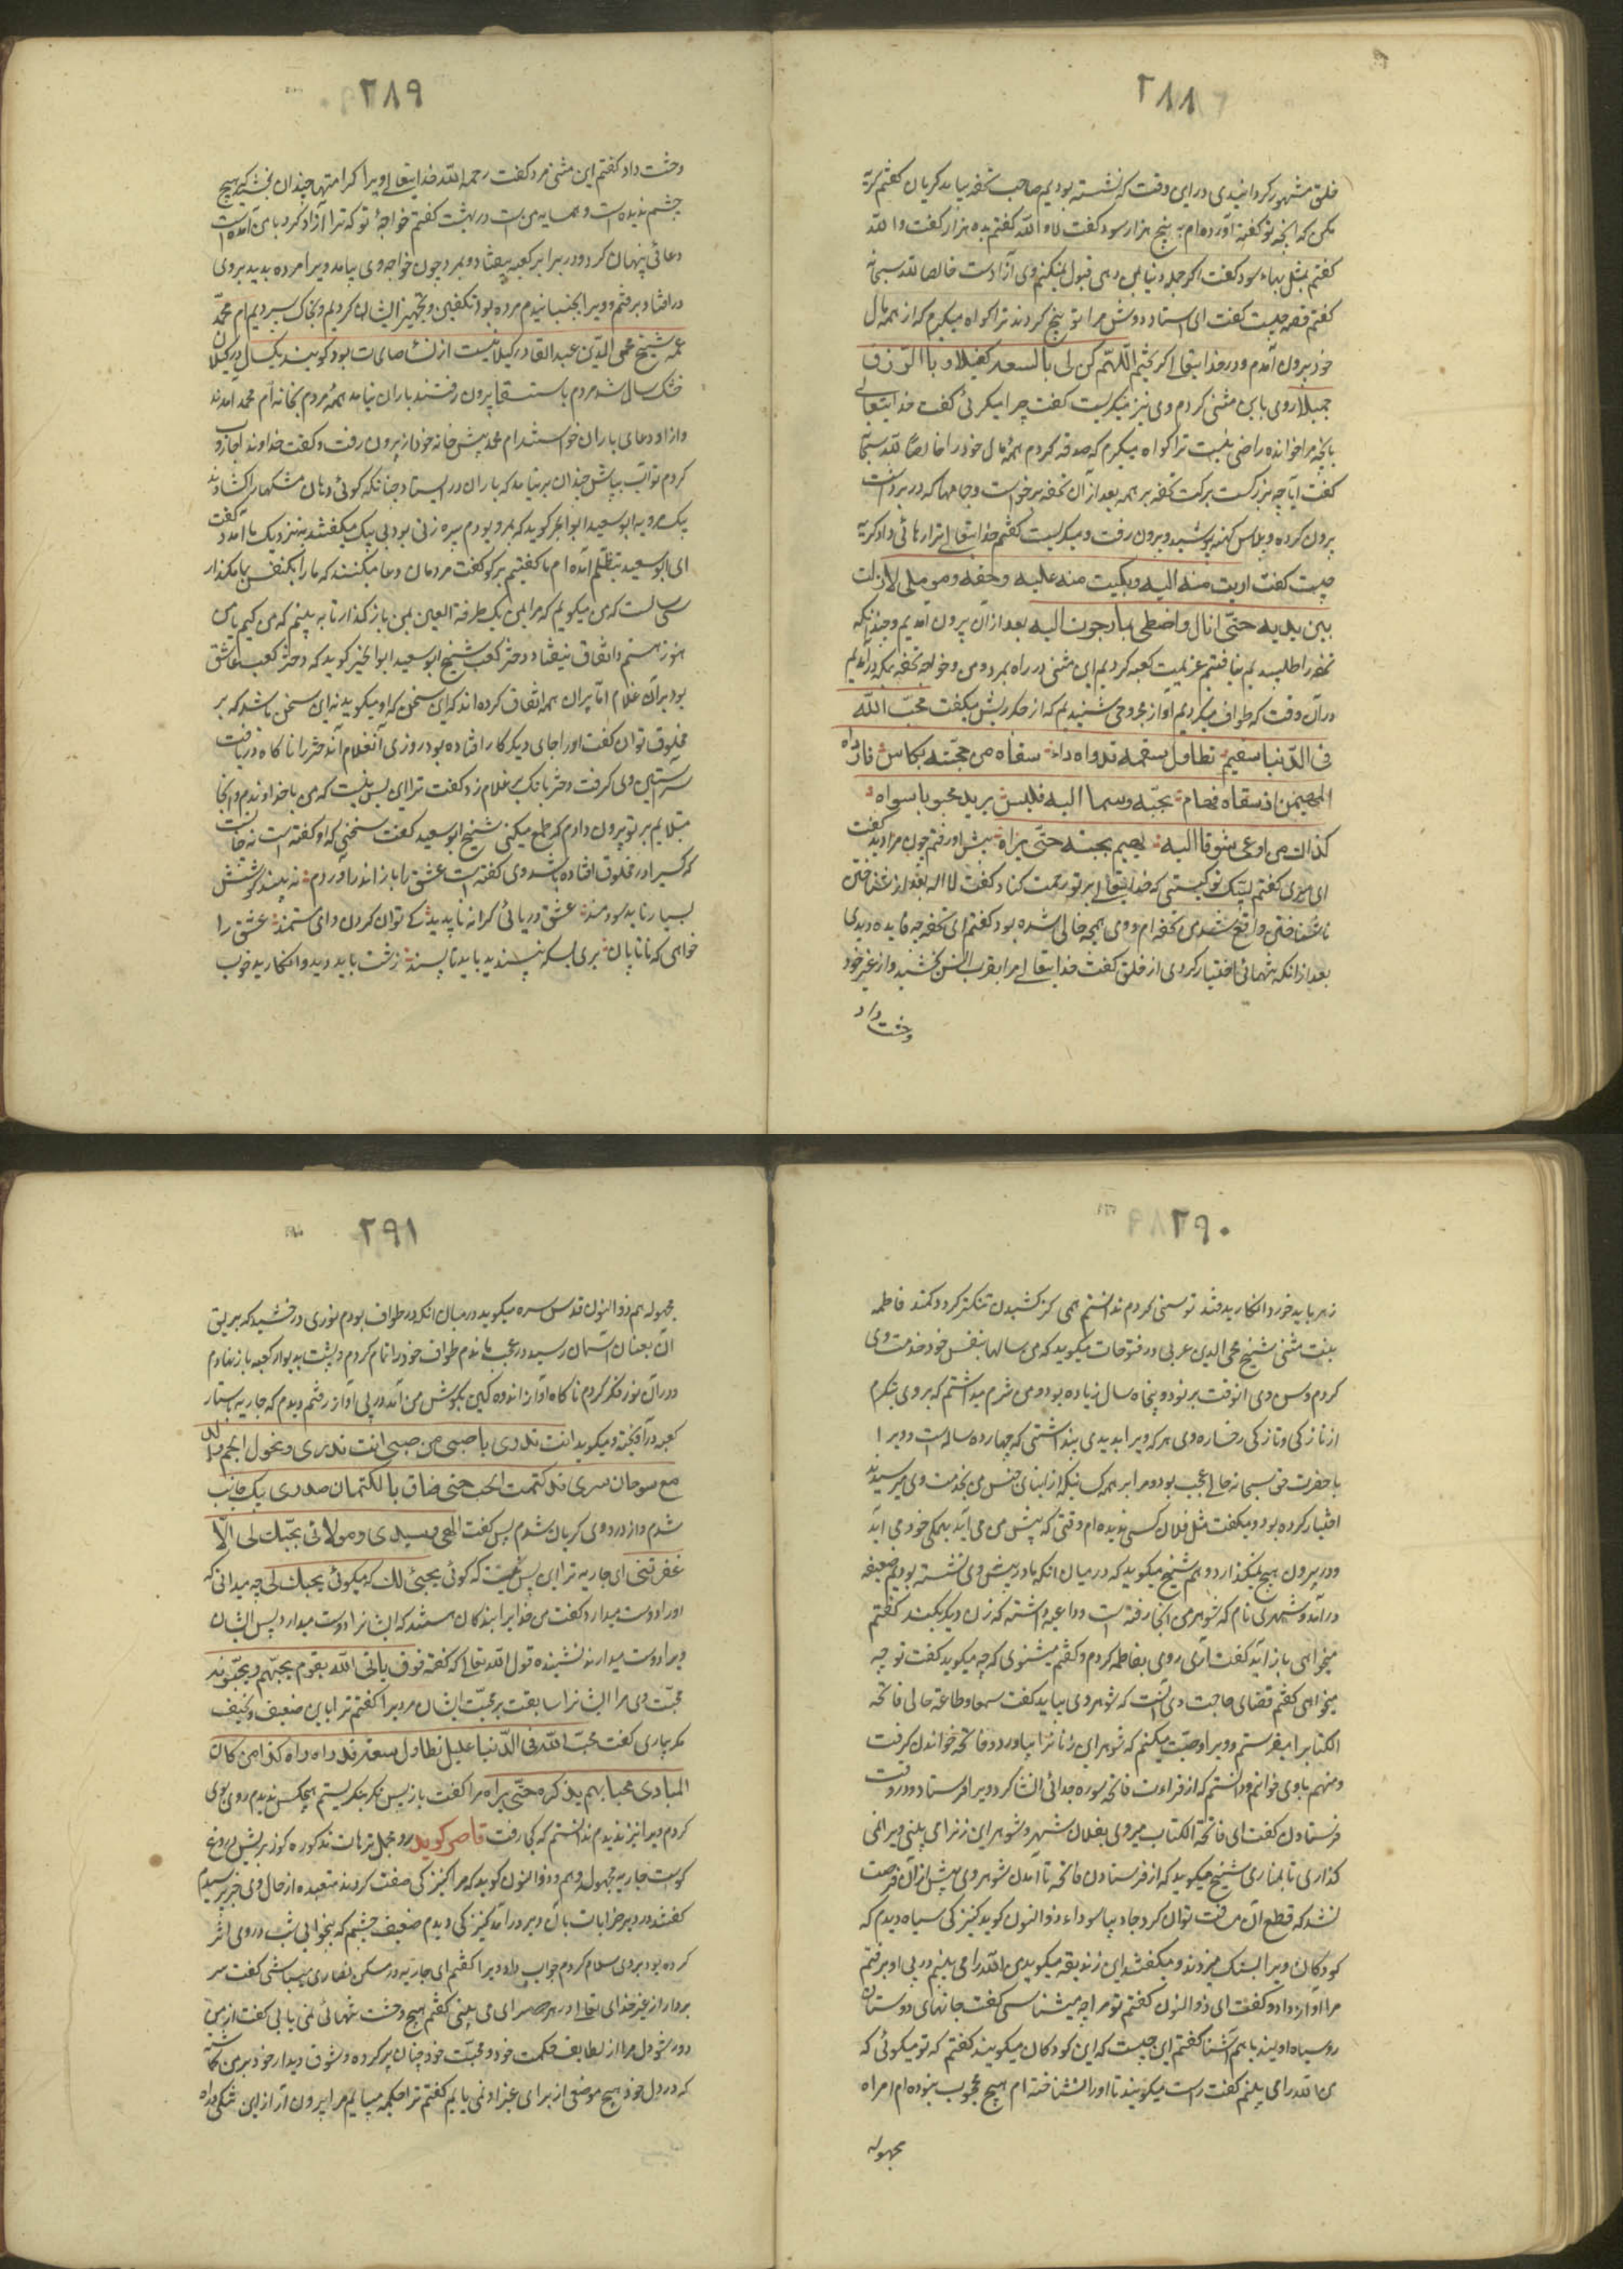 ۲۸۸
خلق مشهور کردانیدی در این وقت که نشسته بودیم صاحب تحفه بیامد کریان کفتم کریه
مکن که آنچه تو کفته آورده‌ام به پنج هزار سود کفت لا و الله کفتم بده هزار کفت و الله
کفتم بمثل بهاء سود کفت اکر جمله دنیا بمن دهی قبول نمیکنم وی آزادست خالصا لله سبحانه
کفتم قصه چیست کفت ای استاد دوش مرا توبیخ کردند ترا کواه میکیرم که از همه مال
خود بیرون آمدم و در خدایتعالی کریختم اللهم کن لی بالسعة کفیلا و بالرزق
جمیلا روی باین مثنی کردم وی نیز میکریست کفت چرا میکرئی کفت خدایتعالی
بآنچه مرا خوانده راضی نیست ترا کواه میکیرم که صدقه کردم همه مال خود را خالصا لله سبحانه
کفت آیا چه بزرکست برکت تحفه بر همه بعد از آن تحفه برخواست و جامها که در برداشت
بیرون کرده و پلاس کهنه پوشید و بیرون رفت و میکریست کفتم خدایتعالی ترا رهائی داد کریه
چیست کفت هربت منه الیه و بکیت منه علیه وحقه وهو مولی لا زلت
بین یدیه حتی انال واحظی بما رجوت الیه بعد از آن بیرون آمدیم و چندانکه
تحفه را طلبیدیم نیافتیم عزیمت کعبه کردیم این مثنی در راه بمرد و من و خواجه تحفه بمکه درآمدیم
در آن وقت که طواف میکردیم آواز مجروحی شنیدیم که از جکر ریش میکفت محب الله
فی الدنیا سقیم تطاول سقمه فدواه داه سقاه من محبته بکاس فارواه
المهیمن اذ سقاه فهام بحبه وسما الیه فلیس یرید محبوبا سواه
کذاک من ادعی شوقا الیه یهیم بحبه حتی یراه پیش او رفتم چون مرا دید کفت
ای سری کفتم لبیک تو کیستی که خدایتعالی بر تو رحمت کناد کفت لا اله بعد از شناختن
ناشناختن واقع شد من تحفه‌ام و وی همچو خیالی شده بود کفتم ای تحفه چه فایده دیدی
بعد از آنکه تنهائی اختیار کردی از خلق کفت خدایتعالی مرا بقرب انس بخشید و از غیر خود
وحشت داد
۲۸۹
وحشت داد کفتم این مثنی مرد کفت رحمه الله خدایتعالی ویرا کرامتها چندان بخشید که هیچ
چشم ندیده است و همسایه من است در بهشت کفتم خواجهٔ تو که ترا آزاد کرد با من آمده است
دعائی پنهان کرد و در برابر کعبه بیفتاد و بمرد چون خواجه وی بیامد ویرا مرده بدید بروی
درافتاد برفتم و ویرا بجنبانیدم مرده بود تکفین و تجهیز ایشان کردیم و بخاک سپردیم ام محمد
عمه شیخ محی الدین عبد القادر کیلانیست از نسا صالحات بود کویند یکسال در کیلان
خشک سال شد مردم باستسقا بیرون رفتند باران نیامد همه مردم بخانه ام محمد آمدند
و از او دعای باران خواستند ام محمد پیش خانه خود از بیرون رفت و کفت خداوندا جاروب
کردم تو آب بپاش چندان برنیامد که باران در ایستاد چنانکه کوئی دهان مشکها را کشادند
بیک مرویه ابو سعید ابوالخیر کوید که بمرو بودم پیره زنی بود بی‌بیک میکفتند بنزدیک ما آمد و کفت
ای ابو سعید بتظلم آمده‌ام ما کفتیم برکو کفت مردمان دعا میکنند که ما را یکنفس بما مکذار
سی سالست که من میکویم که مرا بمن یک طرفة العین بمن باز کذار تا به بینم که من کیم یا من
هنوز هستم و اتفاق نیفتاد دختر کعب شیخ ابو سعید ابوالخیر کوید که دختر کعب عاشق
بود بر آن غلام اما پیران همه اتفاق کرده‌اند که این سخن که او میکوید نه این سخن باشد که بر
مخلوق توان کفت او را جای دیکر کار افتاده بود روزی آن غلام آن دختر را ناکاه دریافت
سرآستین وی کرفت دختر بانک بر غلام زد کفت ترا این بس نیست که من با خداوندم و آنجا
مبتلایم بر تو بیرون دادم که طمع میکنی شیخ ابو سعید کفت سخنی که او کفته است نه چنانست
که کسیرا در مخلوق افتاده باشد وی کفته است عشق را باز اندر آوردم نه بیند کوشش
بسیار نایید سودمند عشق دریائی کرانه ناپدید کی توان کردن دوای مستمند عشق را
خواهی که تا پایان بری بسکه بپسندید باید ناپسند زشت باید دید و انکارید خوب
۲۹۰
زهر باید خورد و انکارید قند توسنی کردم ندانستم همی کز کشیدن تنکتر کردد کمند فاطمه
بنت مثنی شیخ محی الدین عربی در فتوحات میکوید که من سالها بنفس خود خدمت وی
کردم و سن وی آنوقت بر نود و پنجاه سال زیاده بود و من شرم میداشتم که بر وی بنکرم
از نازکی و تازکی رخساره وی هر که ویرا بدیدی پنداشتی که چهارده ساله است و ویرا
با حضرت حق سبحانه حالی عجب بود و مرا بر همه کسانیکه از ابنای جنس من بخدمت وی میرسیدند
اختیار کرده بود و میکفت مثل فلان کسی ندیده‌ام وقتی که پیش من می‌آید بهمکی خود می‌آید
و در بیرون هیچ نمیکذارد و هم شیخ میکوید که در میان آنکه ما در پیش وی نشسته بودیم ضعیفه
درآمد و شهری نام که شوهر من آنجا رفته است و داعیه داشته که زن دیکر بکند کفتم
میخواهی بازآید کفت آری روی بفاطمه کردم و کفتم میشنوی که چه میکوید کفت تو چه
میخواهی کفتم قضای حاجت وی آنست که شوهر وی بیاید کفت سمعا و طاعة حالی فاتحه
الکتاب را میفرستم و ویرا وصیت میکنم که شوهر این زنا نرا بیاورد و فاتحه خواندن کرفت
و من هم با وی خواندم و دانستم که از قراءت فاتحه صوره جدائی انشا کرد ویرا فرستاد و در وقت
فرستادن کفت ای فاتحة الکتاب میروی بفلان شهر و شوهر این زنرا می‌بینی ویرا نمی
کذاری تا بمیآری شیخ میکوید که از فرستادن فاتحه تا آمدن شوهر وی بیش از آن فرصت
نشد که قطع آن مسافت توان کرد جاریه سوداء ذوالنون کوید کنیزکی سیاه دیدم که
کودکان ویرا بسنک میزدند و میکفتند این زندیقه میکوید من الله را می‌بینم در پی او برفتم
مرا آواز داد و کفت ای ذوالنون کفتم تو مرا چه میشناسی کفت جانهای دوستان
و سپاه اویند با هم آشنا کفتم این چیست که این کودکان میکویند کفتم که تو میکوئی که
من الله را می بینم کفت راست میکویند تا او را شناخته‌ام هیچ محجوب نبوده‌ام امراه
مجهوله
۲۹۱
مجهوله هم ذوالنون قدس سره میکوید در میان آنکه در طواف بودم نوری درخشید که بریق
آن بعنان آسمان رسید در عجب ماندم طواف خود را تمام کردم و پشت بدیوار کعبه باز نهادم
و در آن نور فکر کردم ناکاه آواز اندوه کین بکوش من آمد در پی آواز رفتم دیدم که جاریه بستار
کعبه درآویخته و میکوید انت تدری یا حبیبی من حبیبی انت تدری ونحول الجسم والد
مع یبوحان بسری قد کتمت الحب حتی ضاق بالکتمان صدری بیک جانب
شدم و از درد وی کریان شدم پس کفت الهی وسیدی ومولائی بحبک لی الا
غفرتنی ای جاریه ترا این بس نیست که کوئی بحبی لک که میکوئی بحبک لی چه میدانی که
او را دوست میدارد کفت من خدایرا بندکان هستند که ایشانرا دوست میدارد پس ایشان
ویرا دوست میدارند نشنیده قول الله تعالی که کفته فسوف یاتی الله بقوم یحبهم ویحبونه
محبت وی مر ایشانرا سابقست بر محبت ایشان مر ویرا کفتم ترا باین ضعیف و نحیف
مکر بیماری کفت محب الله فی الدنیا علیل تطاول سقمه فدواه داه کذا من کان
للباری محبا یهیم بذکره حتی یراه مرا کفت باز پس نکر بنکریستم هیچکس ندیدم روی بوی
کردم ویرا نیز ندیدم ندانستم که کی رفت قاصر کوید
کویند جاریه مجهوله و هم ذوالنون کوید که مرا کنیزکی صفت کردند متعبده از حال وی خبر پرسیدم
کفتند در دیر خراباتست بآن دیر درآمدم کنیزکی دیدم ضعیف چشم که بیخوابی شب در وی اثر
کرده بود بروی سلام کردم جواب داد ویرا کفتم ای جاریه در مسکن نصاری میباشی کفت سر
بردار از غیر خدای تعالی در هر دو سرای می بینی کفتم هیچ وحشت تنهائی نمی یابی کفت از من
دور شو دل مرا از لطایف حکمت خود و محبت خود چنان پر کرده و شوق دیدار خود بر من کماشته
که در دل خود هیچ موضعی از برای غیر او نمی یابم کفتم ترا حکیمه می‌بینم مرا بیرون آر از این تنکی و راه